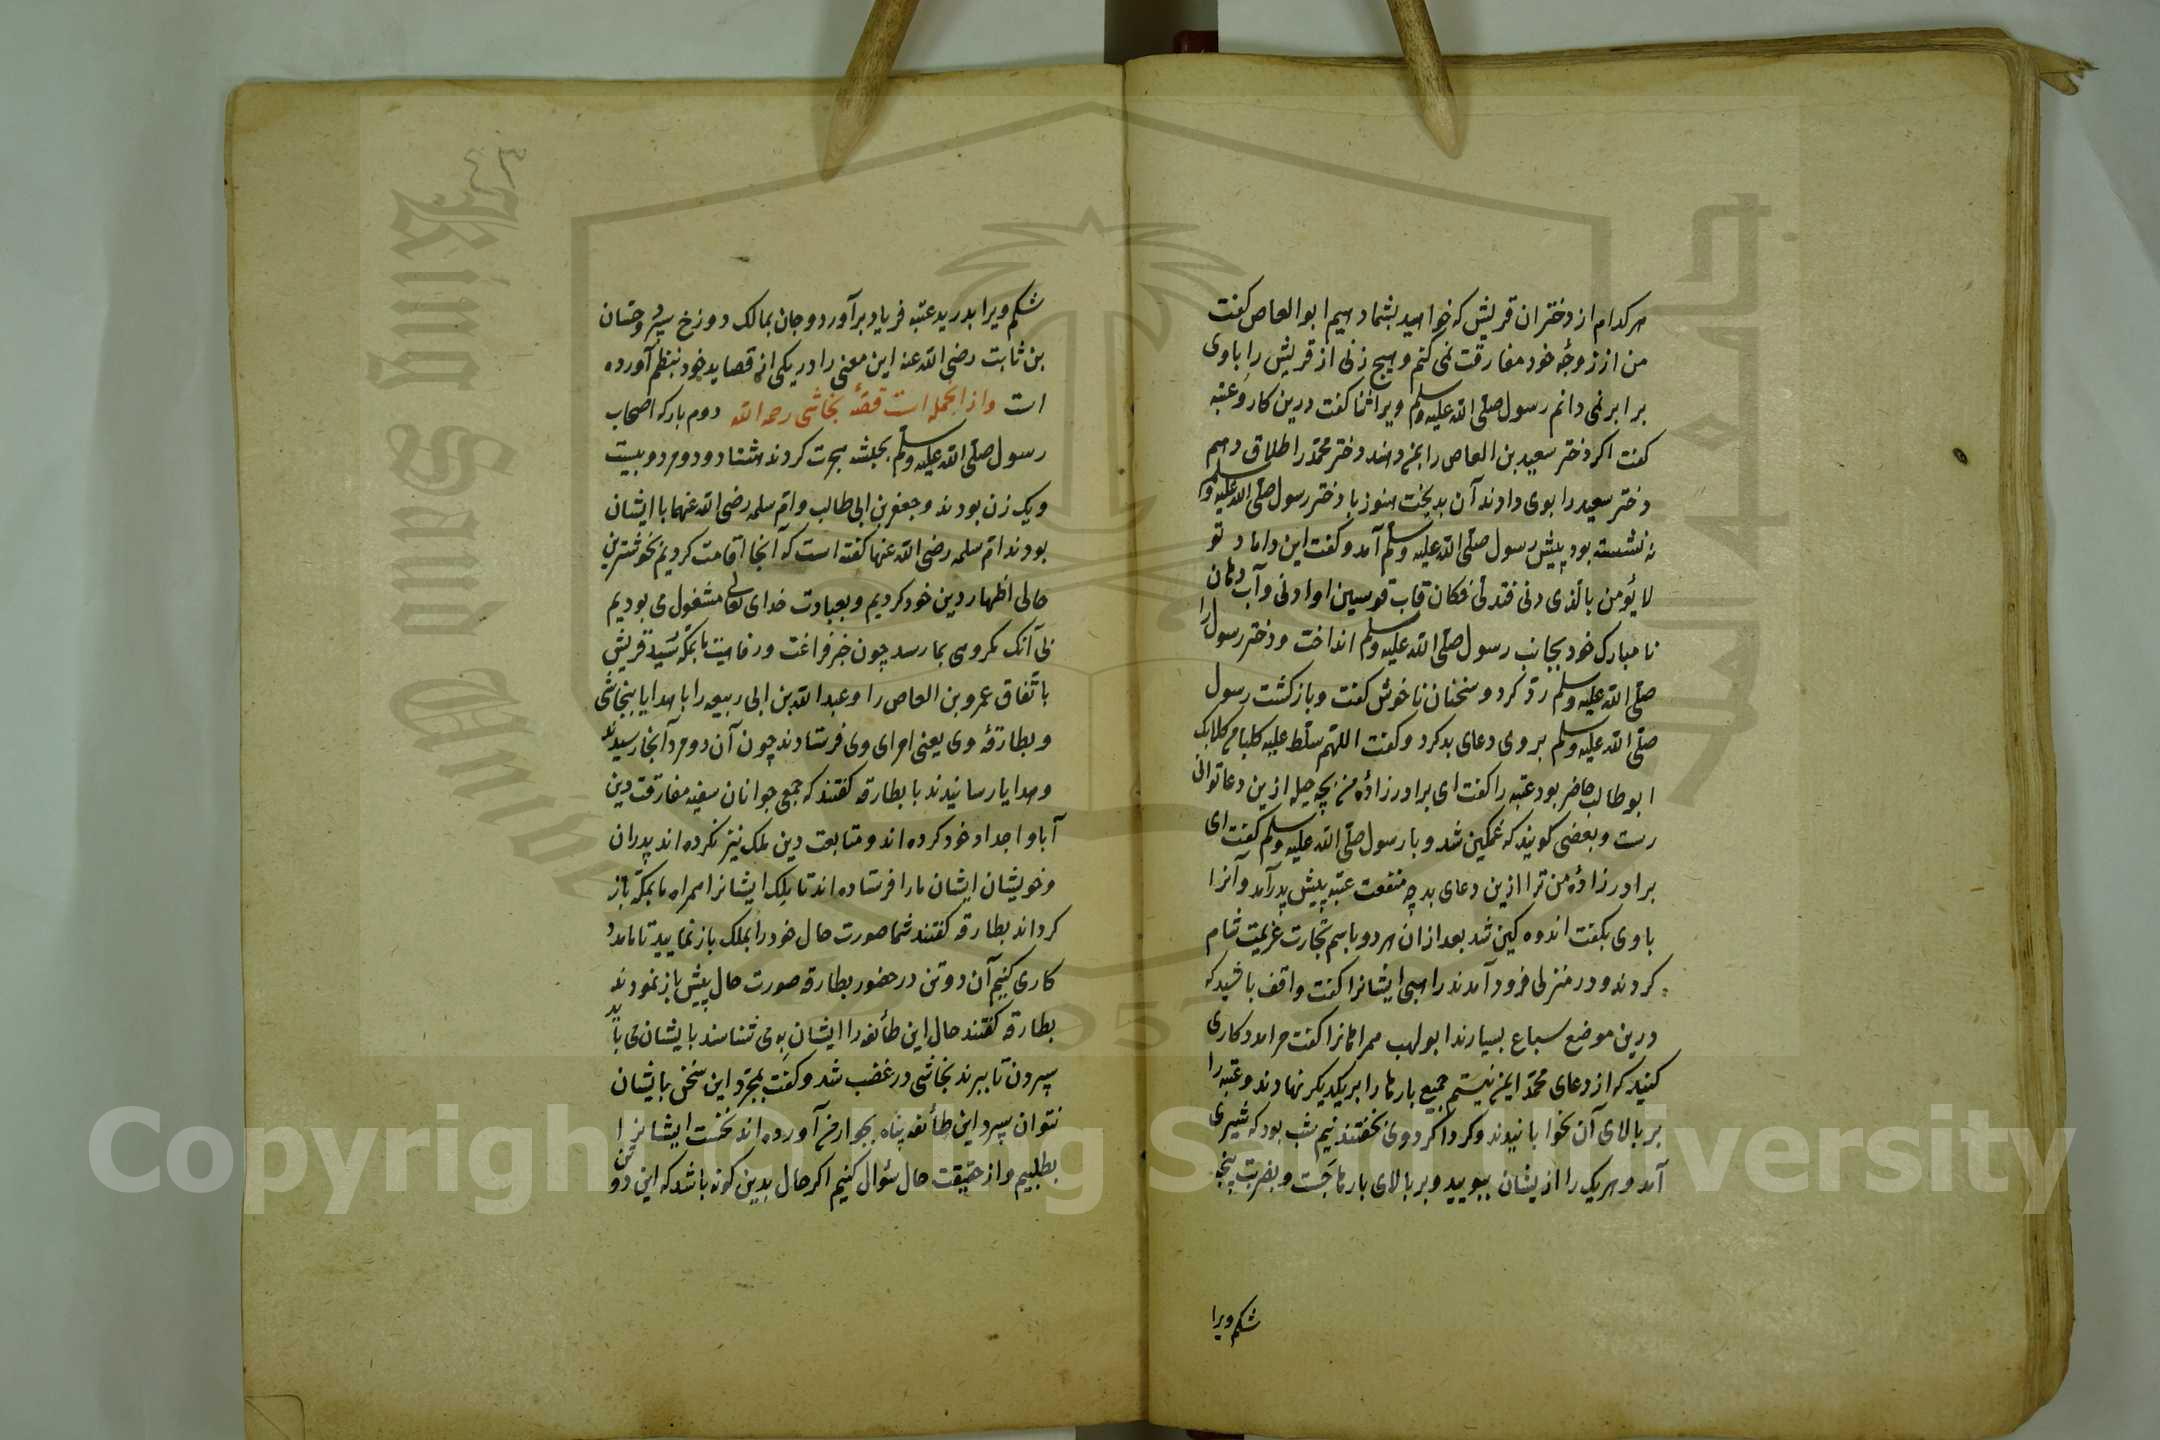 هر کدام از دختران قریش که خواهید بشما دهیم ابو العاص گفت
من از زوجهٔ خود مفارقت نمی کنم و هیچ زنی از قریش را باوی
برابر نمی دانم رسول صلی الله علیه وسلم ویرا ثنا گفت درین کار و عتبه
گفت اکر دختر سعید بن العاص را بمن دهند دختر محمد را طلاق دهم
دختر سعید را بوی دادند آن بدبخت هنوز با دختر رسول صلی الله علیه وسلم
نه نشسته بود پیش رسول صلی الله علیه وسلم آمد و گفت این داماد تو
لا یؤمن بالذی دنی فتدلی فکان قاب قوسین او ادنی و آب دهان
نا مبارک خود بجانب رسول صلی الله علیه وسلم انداخت و دختر رسول را
صلی الله علیه وسلم رد کرد و سخنان ناخوش گفت و بازگشت رسول
صلی الله علیه وسلم بر وی دعای بد کرد و گفت اللهم سلط علیه کلبا من کلابک
ابو طالب حاضر بود عتبه را گفت ای برادر زادهٔ من بچه حیله ازین دعا توانی
رست و بعضی گویند که غمگین شد و با رسول صلی الله علیه وسلم گفت ای
برادر زادهٔ من ترا ازین دعای بد چه منفعت عتبه پیش پدر آمد و آنرا
باوی بگفت اندوه کین شد بعد از ان هر دو باسم تجارت عزیمت شام
کردند و در منزلی فرود آمدند راهبی ایشانرا گفت واقف باشید که
درین موضع سباع بسیارند ابو لهب همراهانرا گفت مرا مددکاری
کنید که از دعای محمد ایمن نیستم جمیع بارها را بریکدیکر نهادند و عتبه را
بر بالای آن بخوابانیدند و کرداکرد وی بخفتند نیم شب بود که شیری
آمد و هر یک را از یشان ببویید و بر بالای بارها جست و بضربت پنجه
شکم ویرا
٤٣
شکم ویرا بدرید عتبه فریاد برآورد و جان بمالک دوزخ سپرد و حسان
بن ثابت رضی الله عنه این معنی را در یکی از قصاید خود بنظم آورده
است و از آنجمله است قصهٔ نجاشی رحمه الله دوم بار که اصحاب
رسول صلی الله علیه وسلم بحبشه هجرت کردند هشتاد و دو مرد و بیست
و یک زن بودند و جعفر بن ابی طالب و ام سلمه رضی الله عنهما با ایشان
بودند ام سلمه رضی الله عنها گفته است که آنجا اقامت کردیم بخوشترین
حالی اظهار دین خود کردیم و بعبادت خدای تعالی مشغول می بودیم
بی آنک مکروهی بما رسد چون خبر فراغت و رفاهیت ما بمکه رسید قریش
باتفاق عمرو بن العاص را و عبد الله بن ابی ربیعه را با هدایا بنجاشی
و بطارقهٔ وی یعنی امرای وی فرستادند چون آن دو مرد آنجا رسیدند
و هدایا رسانیدند با بطارقه گفتند که جمعی جوانان سفیه مفارقت دین
آبا و اجداد خود کرده اند و متابعت دین ملک نیز نکرده اند پدران
و خویشان ایشان ما را فرستاده اند تا ملک ایشانرا همراه ما بمکه باز
گرداند بطارقه گفتند شما صورت حال خود را بملک باز نمایید تا ما مدد
کاری کنیم آن دو تن در حضور بطارقه صورت حال پیش باز نمودند
بطارقه گفتند حال این طائفه را ایشان به می شناسند بایشان می باید
سپردن تا ببرند نجاشی در غضب شد و گفت بمجرد این سخن بایشان
نتوان سپرد این طائفه پناه بجوار من آورده اند نخست ایشانرا
بطلبیم و از حقیقت حال سؤال کنیم اکر حال بدین گونه باشد که این دو تن
Copyright © King Saud University
King Saud University
1957